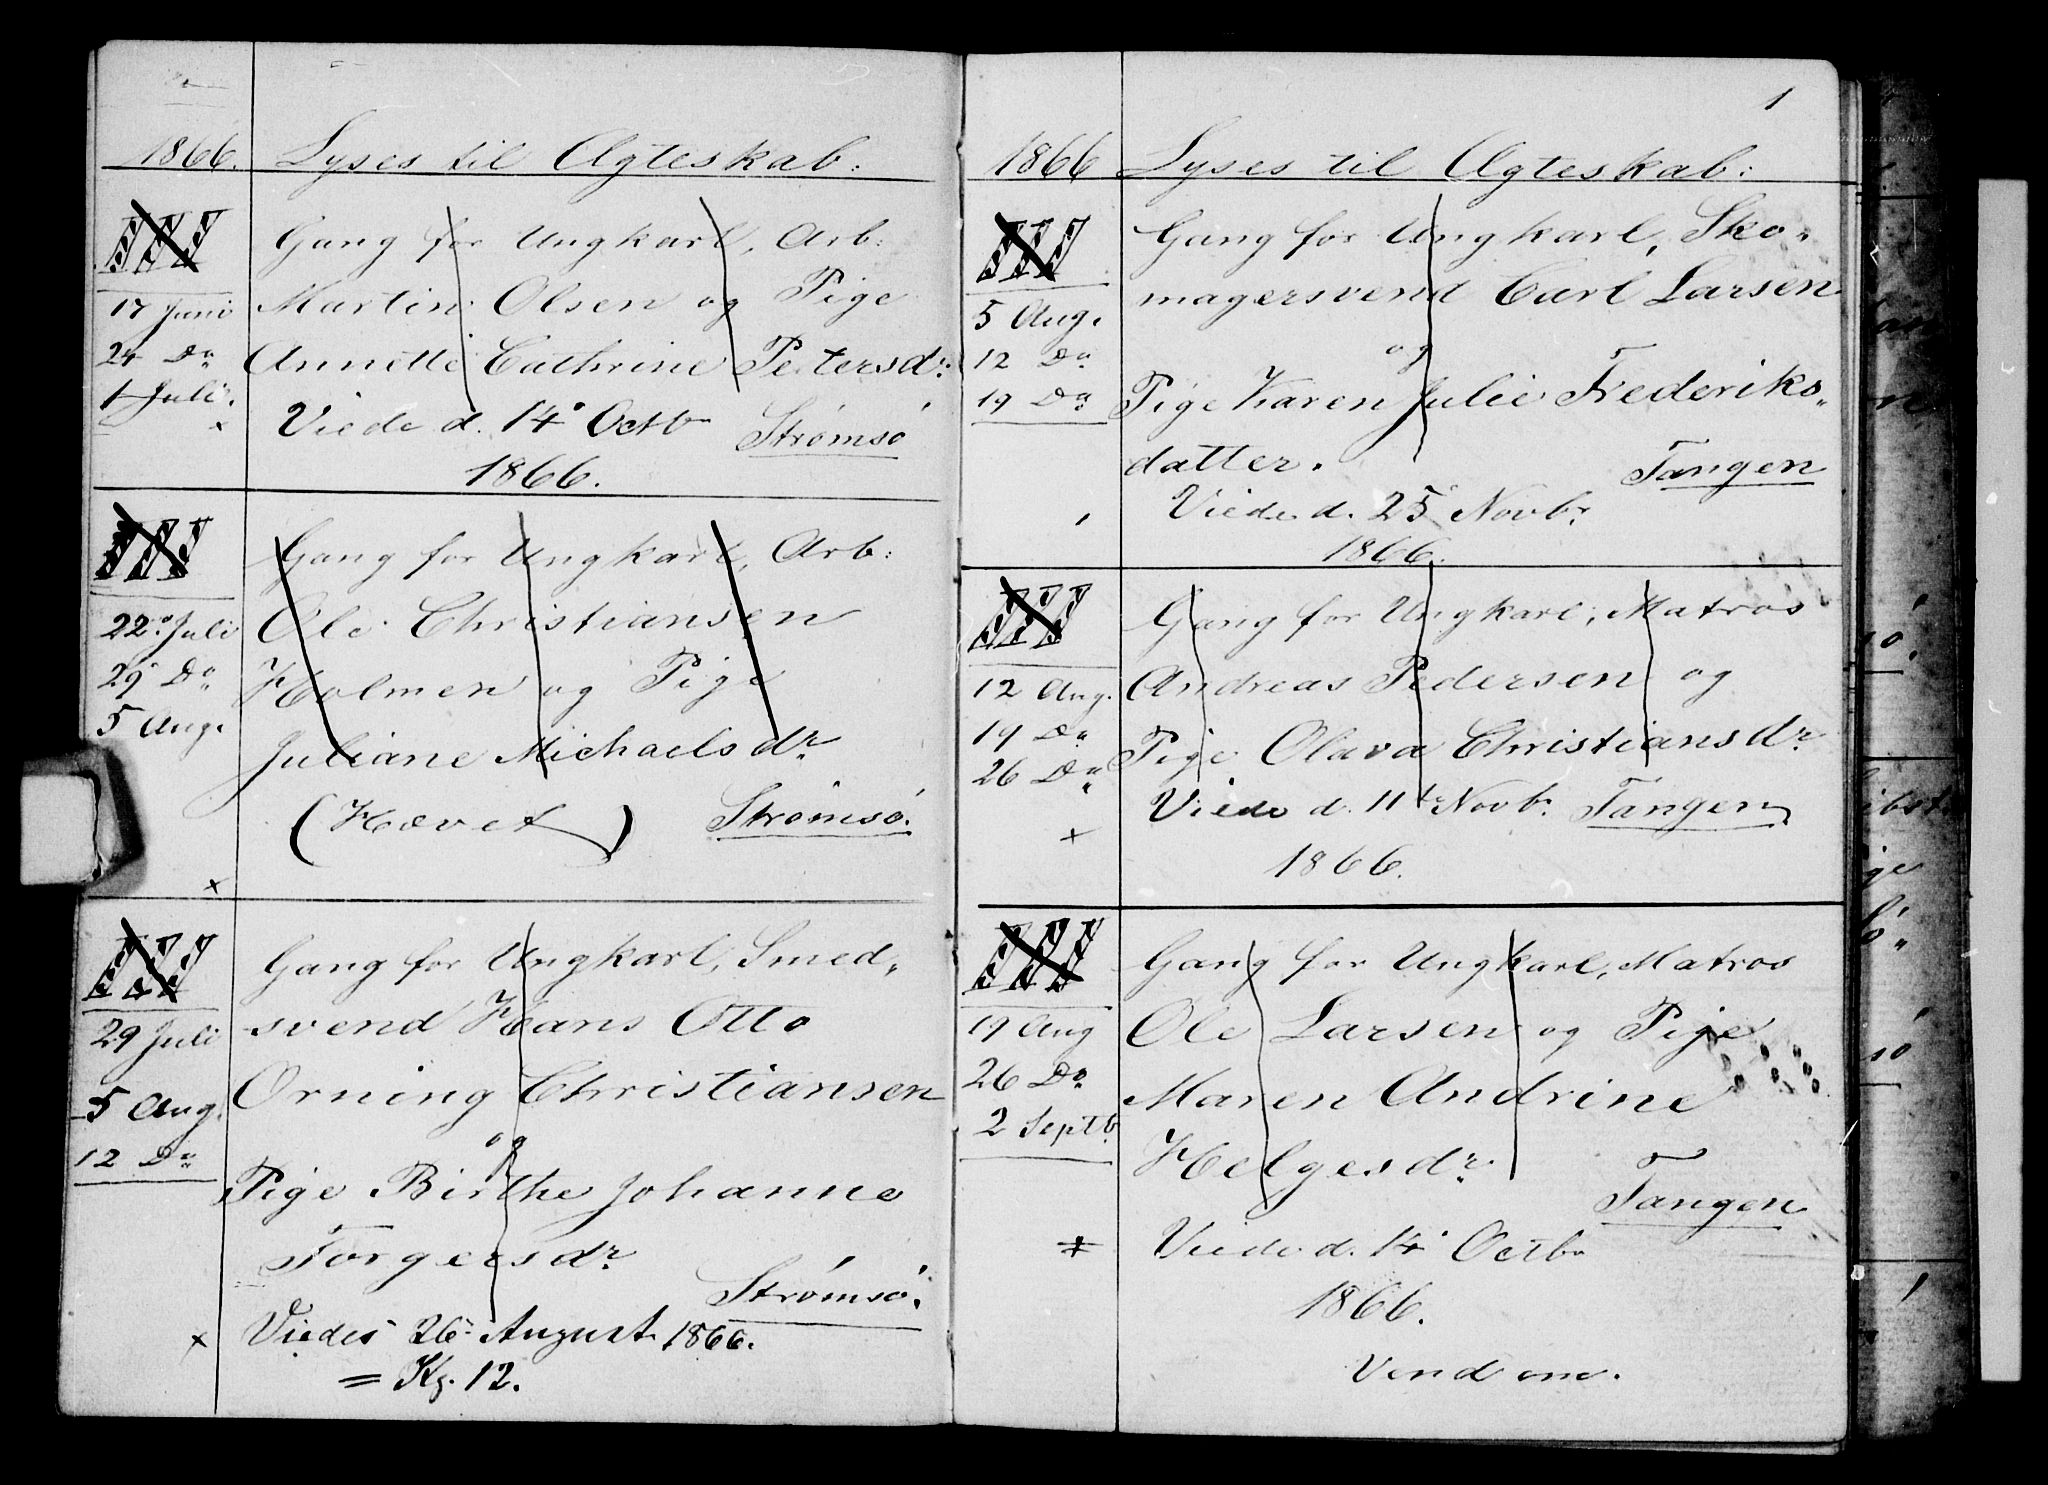 1866. Lyses til Ægteskab:
III Gang for Ungkarl, Arb:
17 Juni Martin Olsen og Pige
24 Do Annette Cathrine Petersdr:
1 Juli. Viede d. 14 Octbr Strømsø
x 1866.
III Gang for Ungkarl, Arb:
22. Juli Ole Christiansen
29 Do Holmen og Pige
5 Aug. Juliane Michaelsdr
(Hævet) Strømsø.
x
III Gang for Ungkarl, Smed„
29 Juli svend Hans Otto
5 Aug. Orning Christiansen
og
12 Do Pige Birthe Johanne
Torgersdr
Strømsø.
x Viedes 26 August 1866.
= Kg. 12.
1
1866 Lyses til Ægteskab:
III Gang for Ungkarl, Sko„
5 Aug. magersvend Carl Larsen
12 Do og
19 Do Pige Karen Julie Frederiks„
datter. Tangen
Viede d. 25 Novbr
1866.
III Gang for Ungkarl, Matros
12 Aug. Andreas Pedersen og
19 Do Pige Olava Christiansdr
26 Do Viede d. 11te Novbr Tangen
x 1866.
III Gang for Ungkarl, Matros
19 Aug Ole Larsen og Pige
26 Do Maren Andrine
2 Septb. Helgesdr
Tangen
x Viede d. 14 Octbr
1866.
Vend om.